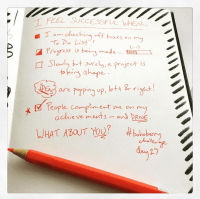 I FEEL SUCCESSFUL WHEN...
I am checking off boxes on my
"To Do List"!
Progress is being made.
Slowly but surely, a project is
taking shape.
are popping up, left & right!
People compliment me on my
achievements and
WHAT ABOUT YOU?
challenge
day 27